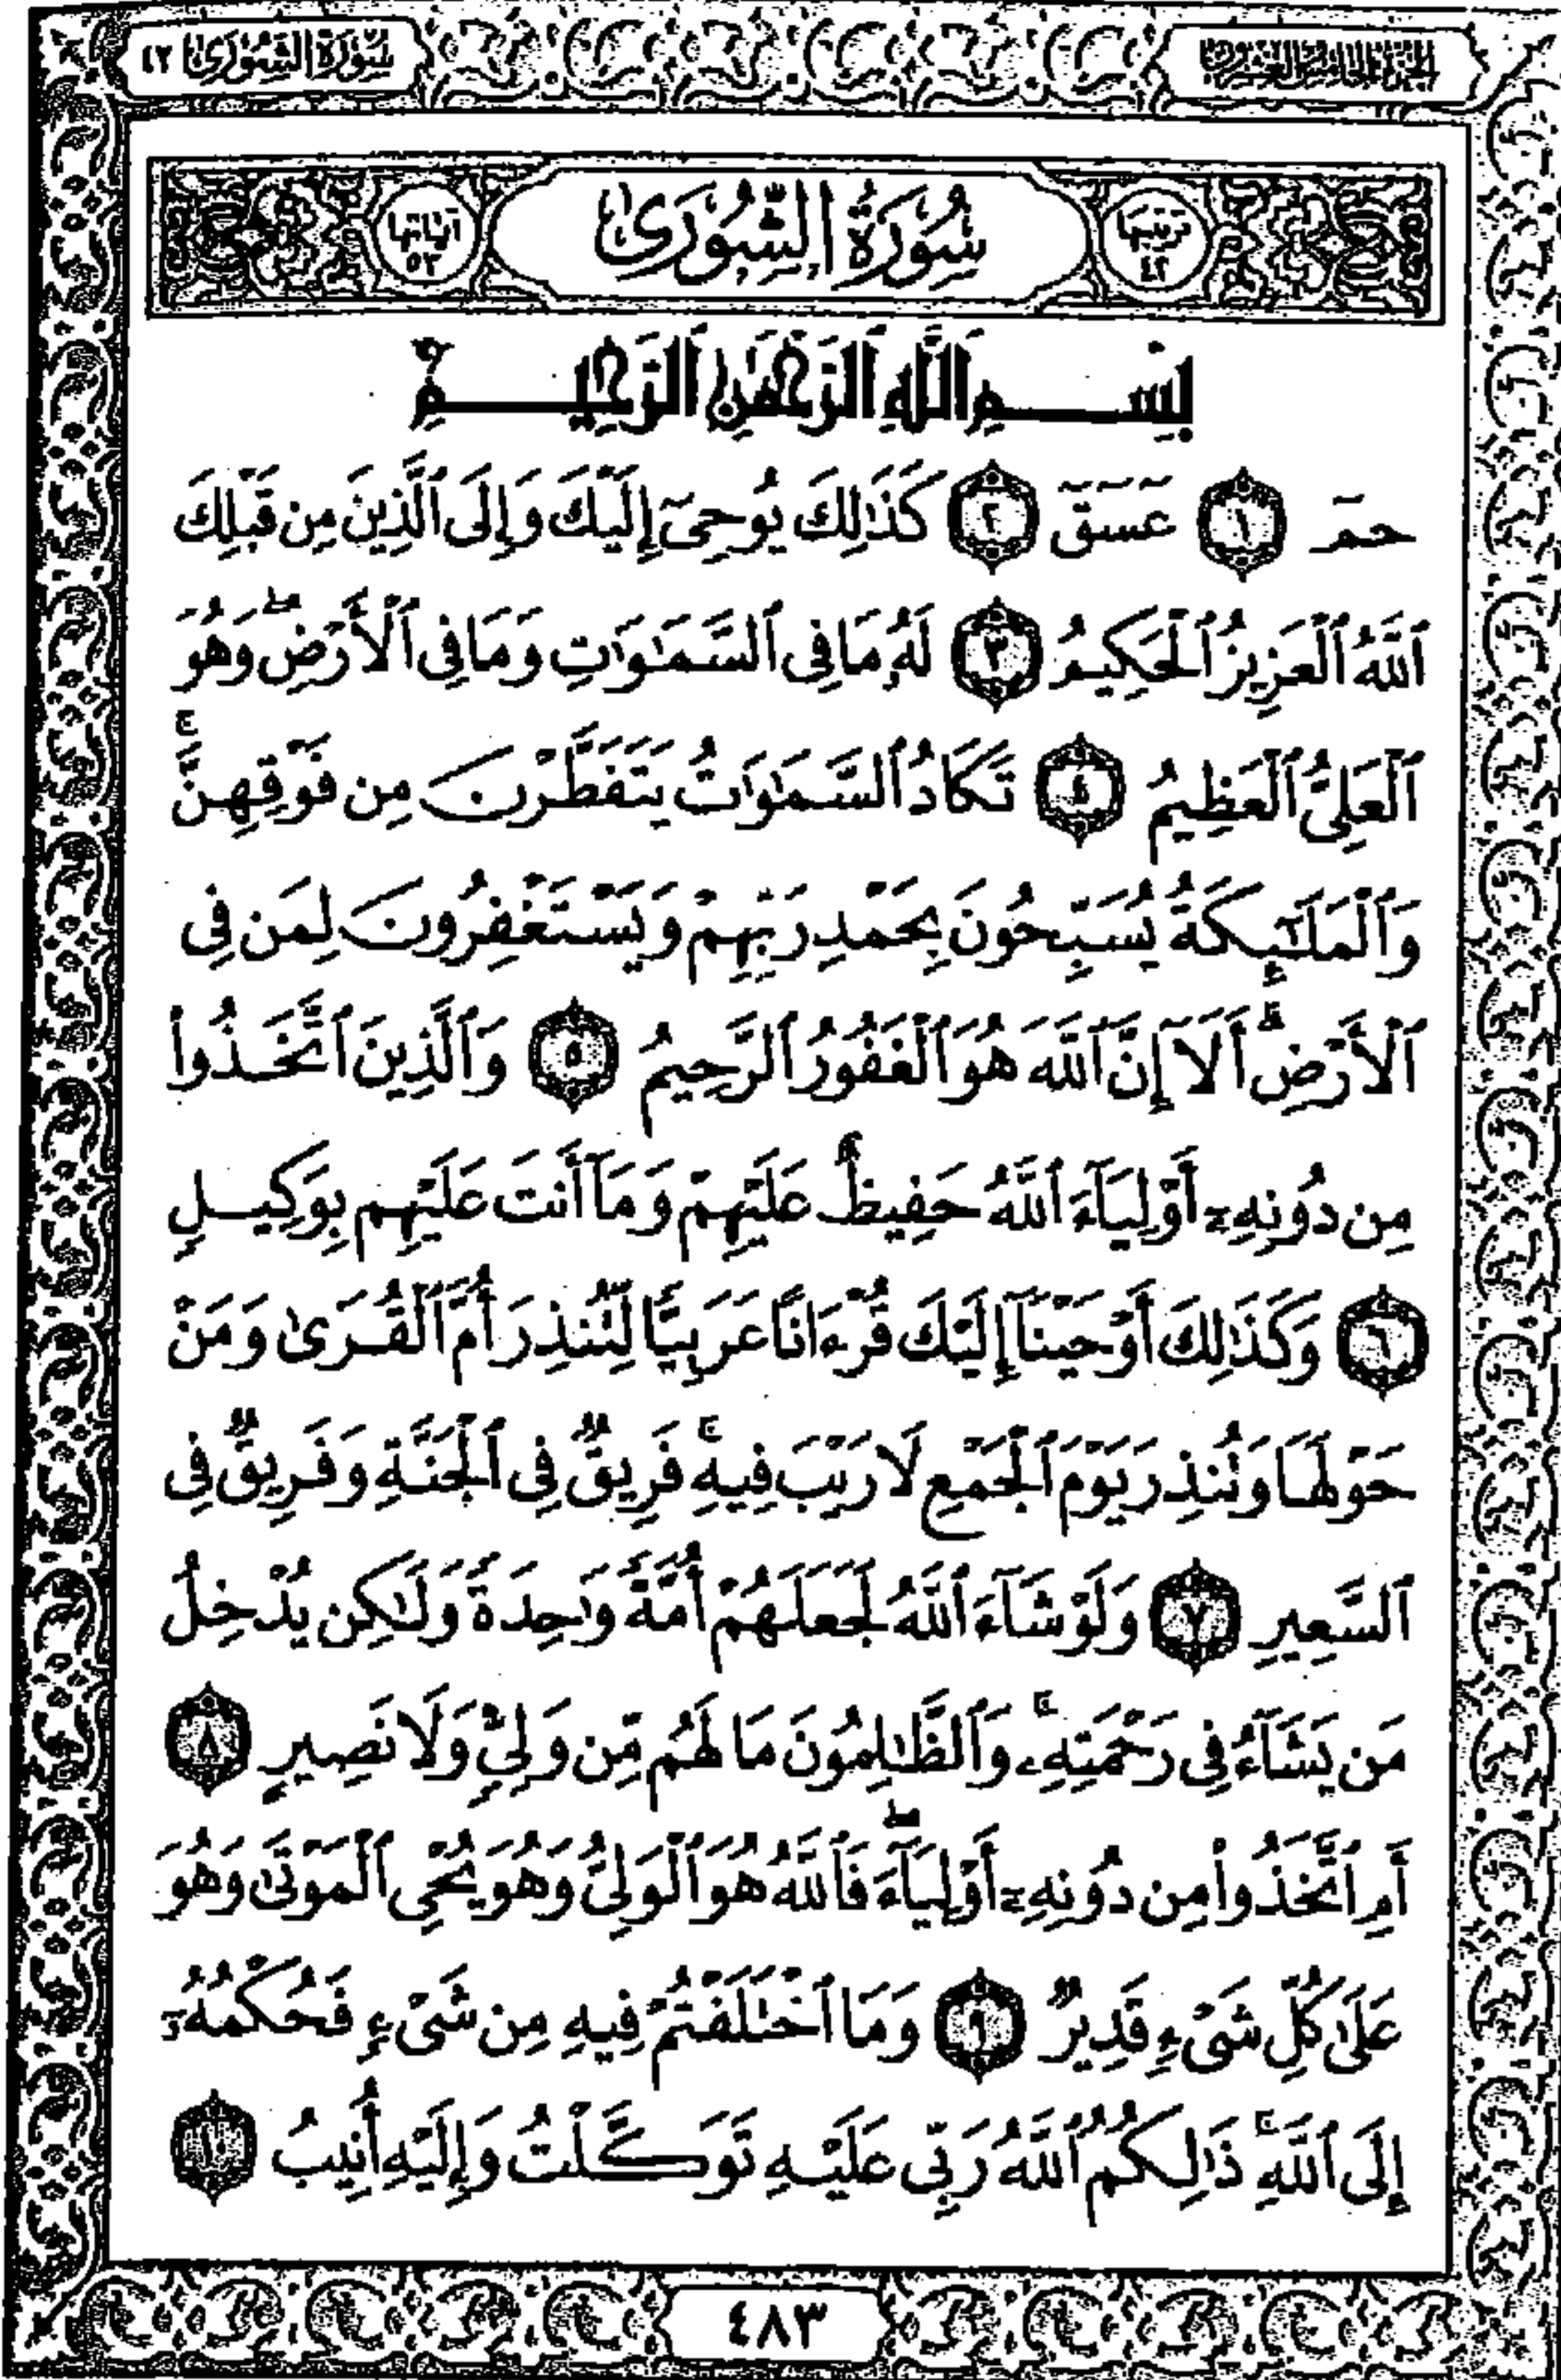 الجزء الخامس والعشرون
سُورَةُ الشُّورَىٰ ٤٢
ترتيبها ٤٢
سُورَةُ الشُّورَىٰ
آياتها ٥٣
بِسْمِ ٱللَّهِ ٱلرَّحْمَٰنِ ٱلرَّحِيمِ
حمٓ ١ عٓسٓقٓ ٢ كَذَٰلِكَ يُوحِىٓ إِلَيْكَ وَإِلَى ٱلَّذِينَ مِن قَبْلِكَ
ٱللَّهُ ٱلْعَزِيزُ ٱلْحَكِيمُ ٣ لَهُۥ مَا فِى ٱلسَّمَٰوَٰتِ وَمَا فِى ٱلْأَرْضِ ۖ وَهُوَ
ٱلْعَلِىُّ ٱلْعَظِيمُ ٤ تَكَادُ ٱلسَّمَٰوَٰتُ يَتَفَطَّرْنَ مِن فَوْقِهِنَّ ۚ
وَٱلْمَلَٰٓئِكَةُ يُسَبِّحُونَ بِحَمْدِ رَبِّهِمْ وَيَسْتَغْفِرُونَ لِمَن فِى
ٱلْأَرْضِ ۗ أَلَآ إِنَّ ٱللَّهَ هُوَ ٱلْغَفُورُ ٱلرَّحِيمُ ٥ وَٱلَّذِينَ ٱتَّخَذُوا۟
مِن دُونِهِۦٓ أَوْلِيَآءَ ٱللَّهُ حَفِيظٌ عَلَيْهِمْ وَمَآ أَنتَ عَلَيْهِم بِوَكِيلٍ
٦ وَكَذَٰلِكَ أَوْحَيْنَآ إِلَيْكَ قُرْءَانًا عَرَبِيًّا لِّتُنذِرَ أُمَّ ٱلْقُرَىٰ وَمَنْ
حَوْلَهَا وَتُنذِرَ يَوْمَ ٱلْجَمْعِ لَا رَيْبَ فِيهِ ۚ فَرِيقٌ فِى ٱلْجَنَّةِ وَفَرِيقٌ فِى
ٱلسَّعِيرِ ٧ وَلَوْ شَآءَ ٱللَّهُ لَجَعَلَهُمْ أُمَّةً وَٰحِدَةً وَلَٰكِن يُدْخِلُ
مَن يَشَآءُ فِى رَحْمَتِهِۦ ۚ وَٱلظَّٰلِمُونَ مَا لَهُم مِّن وَلِىٍّ وَلَا نَصِيرٍ ٨
أَمِ ٱتَّخَذُوا۟ مِن دُونِهِۦٓ أَوْلِيَآءَ ۖ فَٱللَّهُ هُوَ ٱلْوَلِىُّ وَهُوَ يُحْىِ ٱلْمَوْتَىٰ وَهُوَ
عَلَىٰ كُلِّ شَىْءٍ قَدِيرٌ ٩ وَمَا ٱخْتَلَفْتُمْ فِيهِ مِن شَىْءٍ فَحُكْمُهُۥٓ
إِلَى ٱللَّهِ ۚ ذَٰلِكُمُ ٱللَّهُ رَبِّى عَلَيْهِ تَوَكَّلْتُ وَإِلَيْهِ أُنِيبُ ١٠
٤٨٣